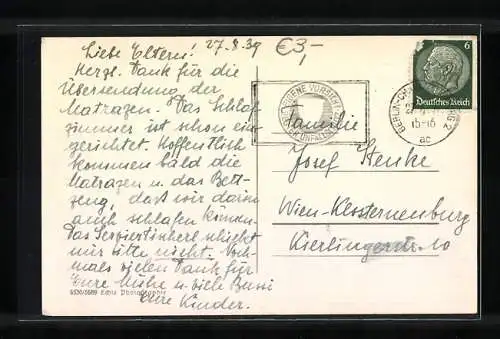 Liebe Eltern! 27.8.39 €3,-
Herzl. Dank für die
Übersendung der
Matrazen. Das Schlaf-
zimmer ist schon ein-
gerichtet. Hoffentlich
kommen bald die
Matrazen u. das Bett-
zeug, daß wir darin
auch schlafen können.
Das schickt
mir bitte nicht. Noch-
mals vielen Dank für
Eure Mühe u. viele Bussi
Eure Kinder.
Echte Photographie
6
Deutsches Reich
BERLIN-CHA
15-16
ac
Familie
Josef
Wien-Klosterneuburg
Kierlingerstr. 10